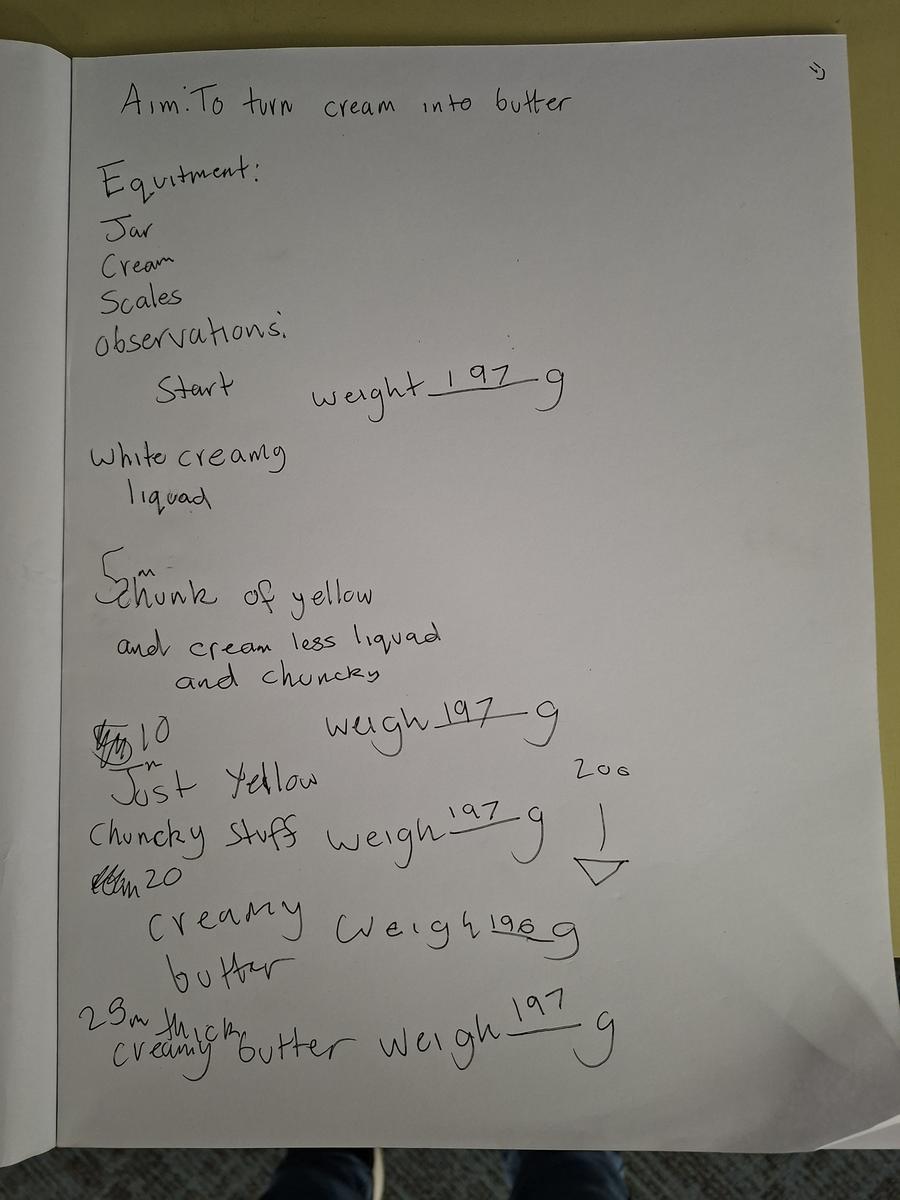 Aim: To turn cream into butter
Equitment:
Jar
Cream
Scales
observations:
Start weight 197 g
White creamy
liquad
5m
Chunk of yellow
and cream less liquad
and chuncky
10 weigh 197 g
m
Just Yellow
200
Chuncky stuff weigh 197 g
20
creamy weigh 196 g
butter
25m thick
creamy butter weigh 197 g